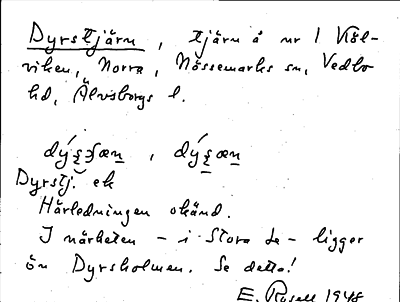 Dyrstjärn, tjärn å nr 1 Kväl-
viken, Norra, Nössemarks sn, Vedbo
hd, Älvsborgs l.
Dyrstj. ek
Härledningen okänd.
I närheten – i Stora Le – ligger
ön Dyrsholmen. Se detta!
E. Rosell 1948